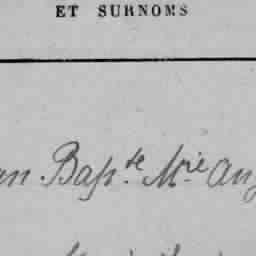 ET SURNOMS
an Bapte Mie Aug